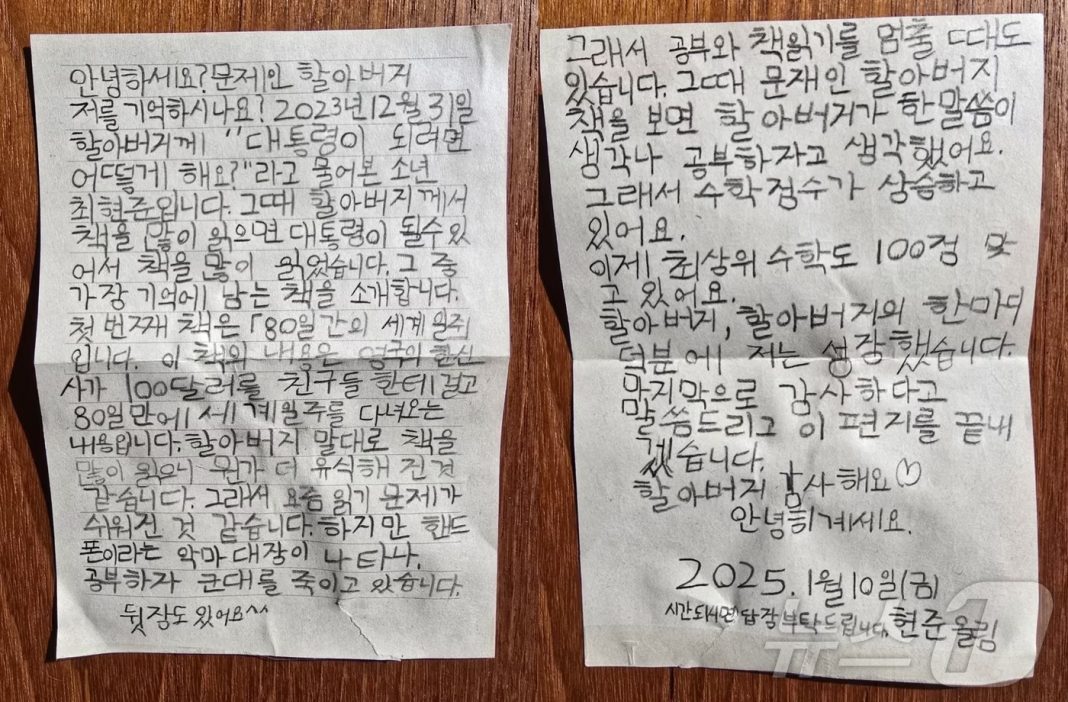 안녕하세요? 문제인 할아버지
저를 기억하시나요? 2023년 12월 31일
할아버지께 "대통령이 되려면
어떻게 해요?"라고 물어본 소년
최현준입니다. 그때 할아버지께서
책을 많이 읽으면 대통령이 될수있
어서 책을 많이 읽었습니다. 그 중
가장 기억에 남는 책을 소개합니다.
첫 번째 책은 「80일간의 세계일주
입니다. 이 책의 내용은 영국의 한신
사가 100달러를 친구들 한테 걸고
80일만에 세계일주를 다녀오는
내용입니다. 할아버지 말대로 책을
많이 읽으니 뭔가 더 유식해 진것
같습니다. 그래서 요즘 읽기 문제가
쉬워진 것 같습니다. 하지만 핸드
폰이라는 악마 대장이 나타나.
공부하자 군대를 죽이고 있습니다.
뒷장도 있어요^^
그래서 공부와 책읽기를 멈출 때도
있습니다. 그때 문재인 할아버지
책을 보면 할아버지가 한말씀이
생각나 공부하자고 생각했어요.
그래서 수학점수가 상승하고
있어요.
이제 최상위 수학도 100점 맞
고 있어요.
할아버지, 할아버지의 한마디
덕분에 저는 성장했습니다.
막지막으로 감사하다고
말씀드리고 이 편지를 끝내
겠습니다.
할아버지 감사해요♡
안녕히계세요.
2025. 1월 10일(금)
시간되시면 답장부탁드립니다. 현준올림
뉴스1